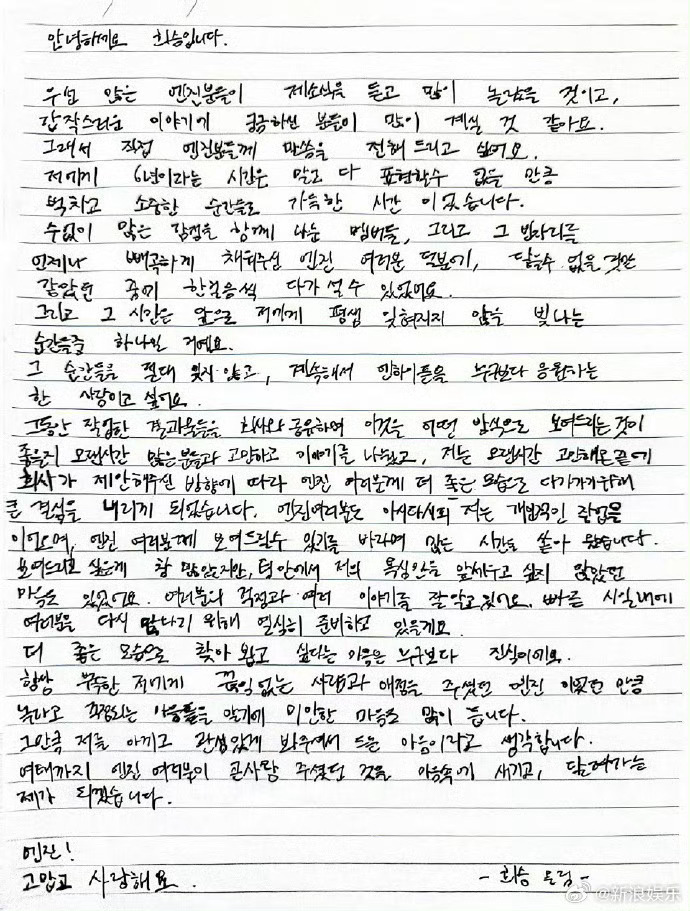 안녕하세요 희승입니다.
우선 많은 엔진분들이 제소식을 듣고 많이 놀랐을 것이고,
갑작스러운 이야기에 궁금하신 분들이 많이 계실 것 같아요.
그래서 직접 엔진분들께 말씀을 전해 드리고 싶어요.
저에게 6년이라는 시간은 말로 다 표현할수 없을 만큼
벅차고 소중한 순간들로 가득한 시간 이었습니다.
수없이 많은 감정을 함께 나눈 멤버들, 그리고 그 빈자리를
언제나 빼곡하게 채워주신 엔진 여러분 덕분에, 닿을수 없을 것만
같았던 꿈에 한걸음씩 다가 설 수 있었어요.
그리고 그 시간은 앞으로 저에게 평생 잊혀지지 않을 빛나는
순간들중 하나일 거예요.
그 순간들을 절대 잊지 않고, 계속해서 엔하이픈을 누구보다 응원하는
한 사람이고 싶어요.
그동안 작업한 결과물들을 회사와 공유하며 이것을 어떤 방식으로 보여드리는것이
좋을지 오랜시간 많은분들과 고민하고 이야기를 나눴고, 저는 오랜시간 고민해온끝에
회사가 제안해주신 방향에 따라 엔진 여러분께 더 좋은 모습으로 다가가기위해
큰 결심을 내리게 되었습니다. 엔진여러분도 아시다시피 저는 개인적인 작업을
이어오며, 엔진 여러분께 보여드릴수 있기를 바라며 많은 시간을 쏟아 왔습니다.
보여드리고 싶은게 참 많았지만, 팀 안에서 저의 욕심만을 앞세우고 싶지 않았던
마음도 있었어요. 여러분의 걱정과 여러 이야기를 잘 알고 있어요. 빠른 시일내에
여러분을 다시 만나기 위해 열심히 준비하고 있을게요.
더 좋은 모습으로 찾아 뵙고 싶다는 마음은 누구보다 진심이에요.
항상 부족한 저에게 끊임없는 사랑과 애정을 주셨던 엔진 이었던 만큼
놀라고 걱정되는 마음들을 알기에 미안한 마음도 많이 듭니다.
그만큼 저를 아끼고 관심있게 봐주셔서 드는 마음이라고 생각합니다.
여태까지 엔진 여러분이 큰사랑 주셨던 것을 마음속에 새기고, 달려가는
제가 되겠습니다.
엔진!
고맙고 사랑해요.
- 희승 드림 -
@新浪娱乐